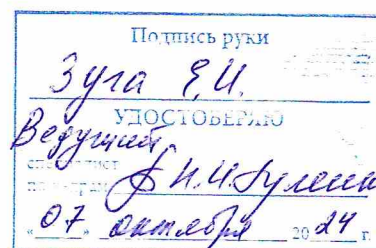 Подпись руки
Зуга Е.И.
УДОСТОВЕРЯЮ
Ведущий
специалист
по кадрам Н.И.
«07» октября 2024 г.